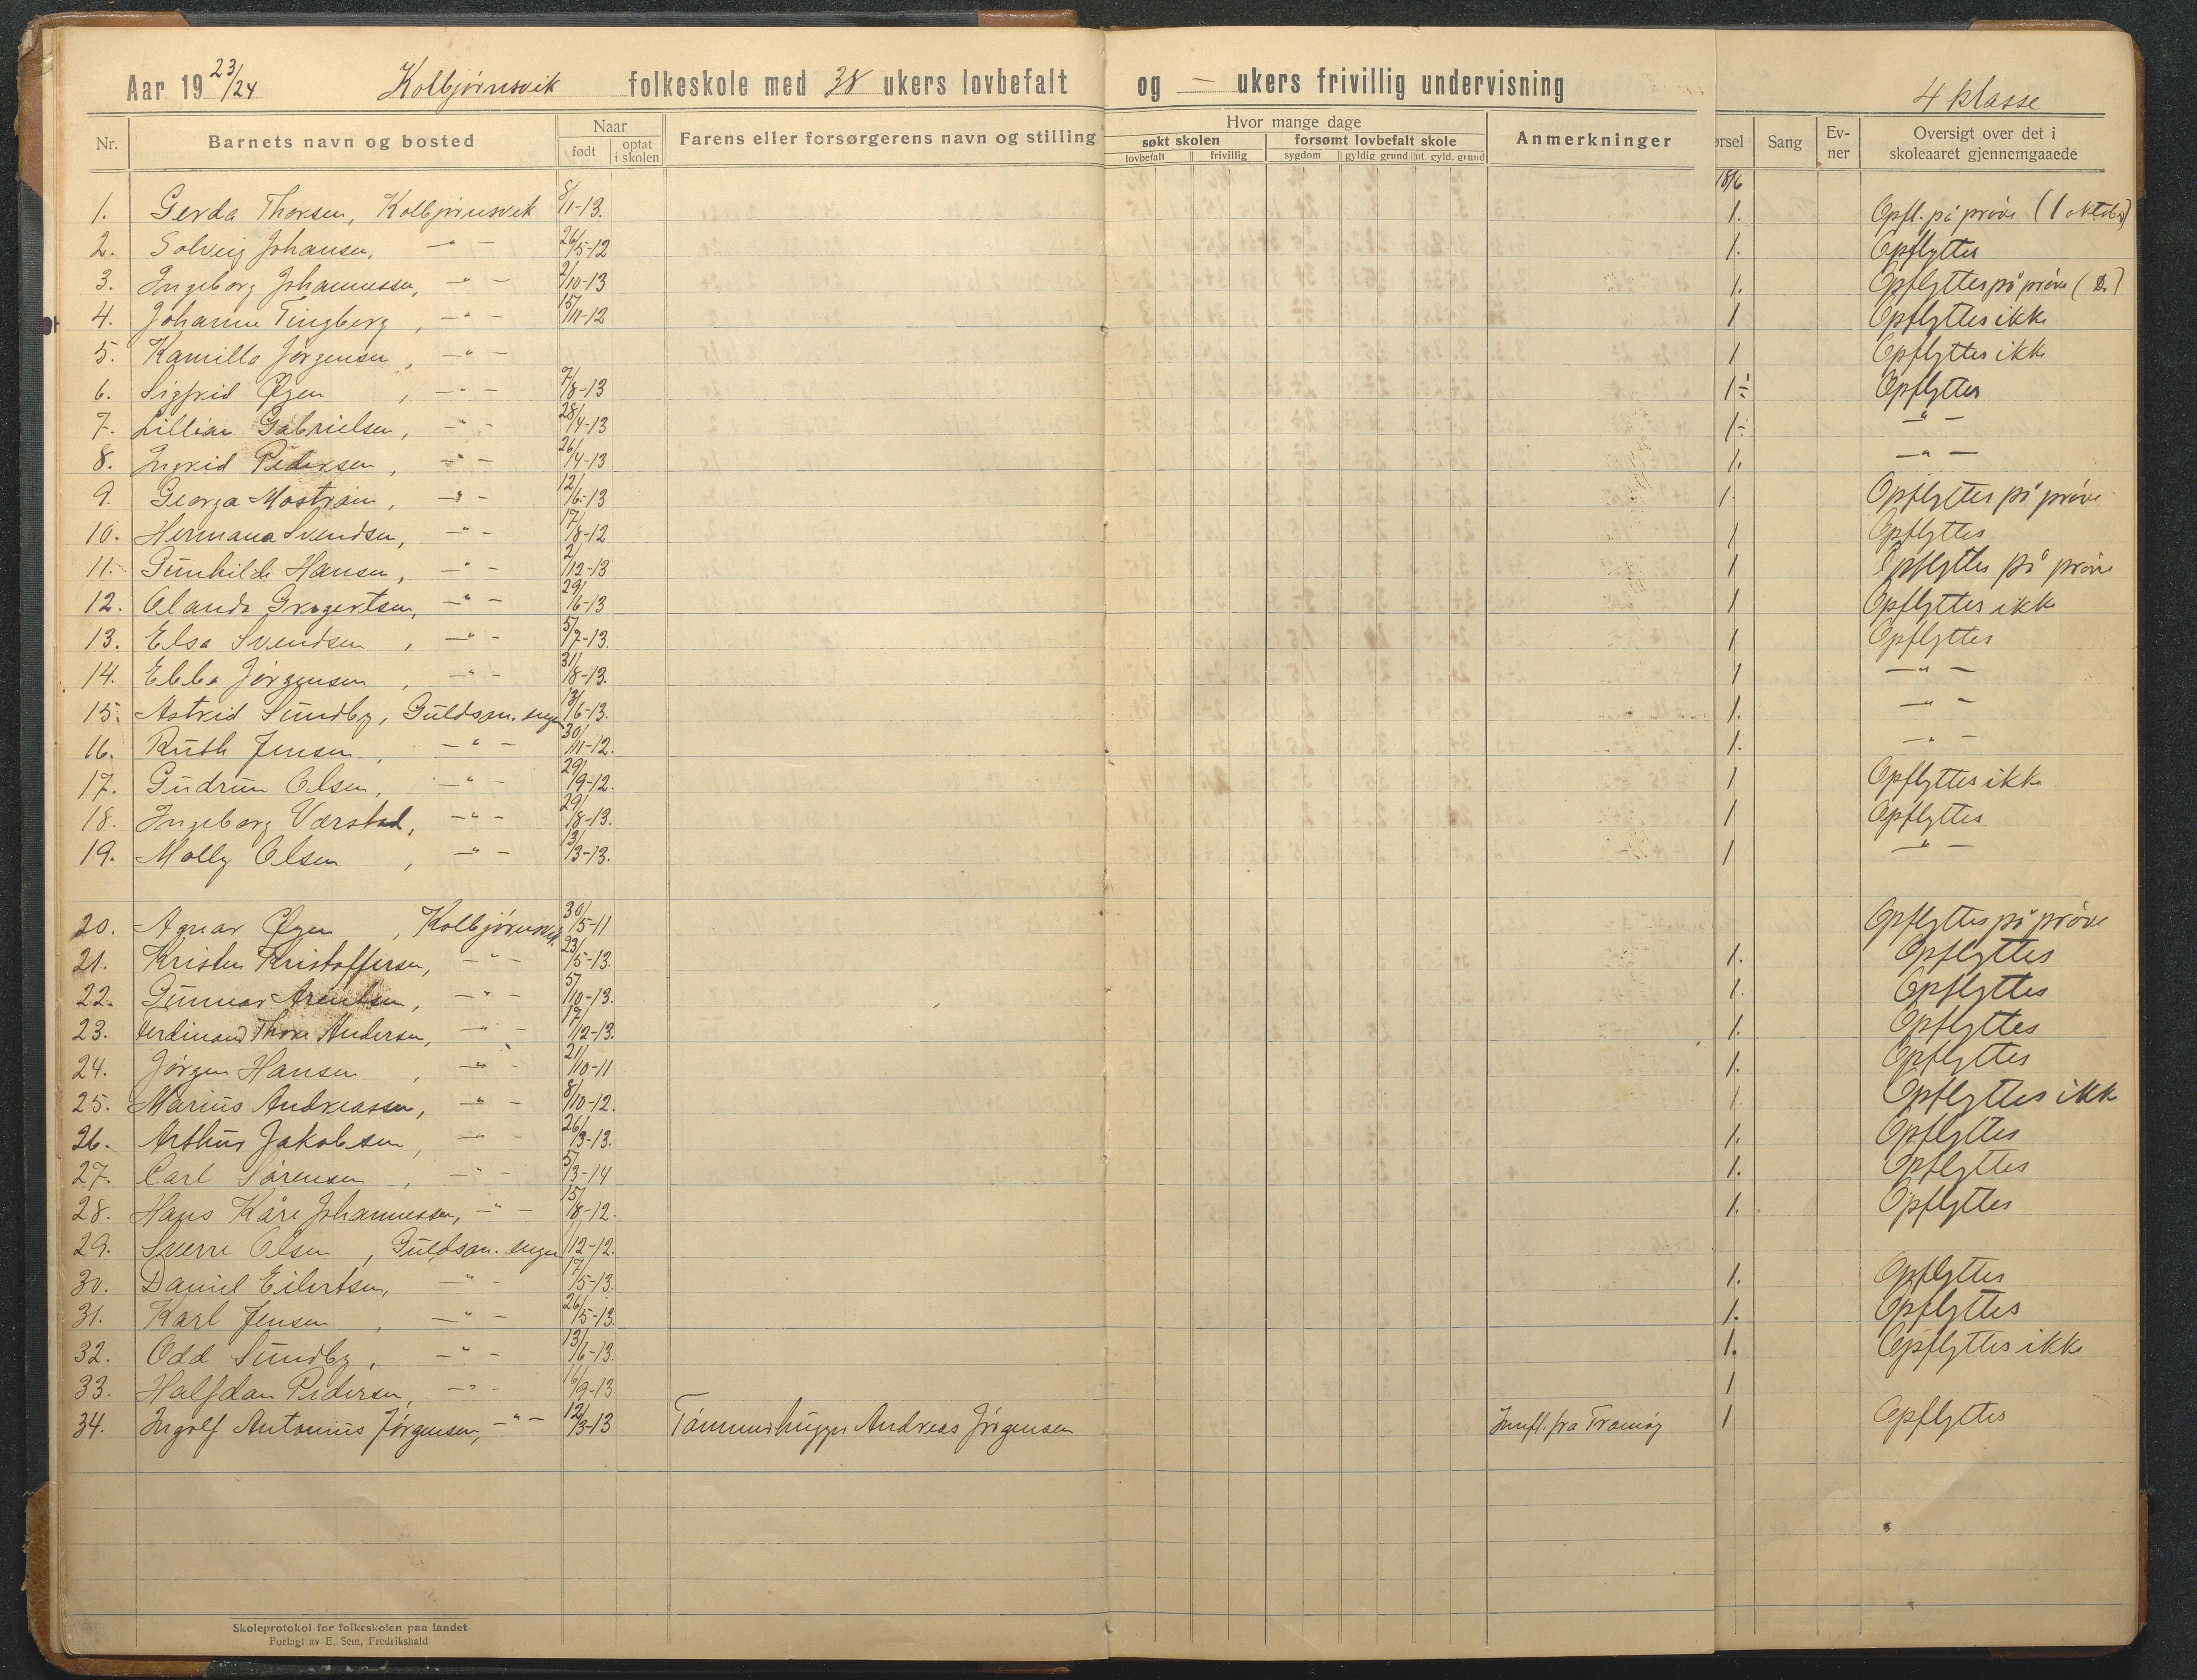 Aar 19 23/24 Kolbjørnsvik folkeskole med 38 ukers lovbefalt og — ukers frivillig undervisning
4 klasse
Nr. Barnets navn og bosted Naar født optat i skolen Farens eller forsørgerens navn og stilling Hvor mange dage søkt skolen lovbefalt frivillig forsømt lovbefalt skole sygdom gyldig grund ut. gyld. grund Anmerkninger ørsel Sang Ev-ner Oversigt over det i skoleaaret gjennemgaaede
18/6
1. Gerda Thorsen, Kolbjørnsvik 8/11-13. 1. Opfl. på prøve (1 oktober)
2. Solveig Johansen, —"— 26/5-12 1. Opflyttes
3. Ingeborg Johannessen, —"— 2/10-13 1. Opflyttes på prøve (D.)
4. Johanne Tingberg, —"— 15/11-12 1 Opflyttes ikke
5. Kamilla Jørgensen, —"— 1 Opflyttes ikke
6. Sigfrid Øgen, —"— 7/8-13 1÷ Opflyttes
7. Lillian Gabrielsen, —"— 28/4-13 1÷ —"—
8. Ingrid Pedersen, —"— 26/4-13 1. —"—
9. Georga Mostrøm, —"— 12/6-13 1 Opflyttes på prøve
10. Hermana Svendsen, —"— 17/8-12 1 Opflyttes
11. Gunhilde Hansen, —"— 2/12-13 1 Opflyttes på prøve
12. Olanda Gregertsen, —"— 29/6-13 1 Opflyttes ikke
13. Elsa Svendsen, —"— 5/7-13. 1 Opflyttes
14. Ebba Jørgensen, —"— 31/8-13. 1 —"—
15. Astrid Sundby, Guldsm. engen 13/6-13. 1. —"—
16. Ruth Jensen, —"— 30/11-12. 1. —"—
17. Gudrun Olsen, —"— 29/9-12. 1 Opflyttes ikke
18. Ingeborg Værstad, —"— 29/8-13. 1 Opflyttes
19. Molly Olsen, —"— 13/3-13. 1 —"—
20. Agnar Øgen, Kolbjørnsvik. 30/5-11 Opflyttes på prøve
21. Kristen Kristoffersen, —"— 23/5-13. 1. Opflyttes
22. Gunnar Arentsen, —"— 5/10-13. 1. Opflyttes
23. Ferdinand Thore Andersen, —"— 17/12-13. 1. Opflyttes
24. Jørgen Hansen, —"— 21/10-11 1. Opflyttes
25. Marius Andreassen, —"— 8/10-12. 1. Opflyttes ikke
26. Arthur Jakobsen, —"— 26/3-13. 1. Opflyttes
27. Carl Sørensen, —"— 5/3-14 1. Opflyttes
28. Hans Kåre Johannessen, —"— 15/8-12. 1. Opflyttes
29. Sverre Olsen, Guldsm. engen 1/12-12.
30. Daniel Eilertsen, —"— 17/5-13. 1. Opflyttes
31. Karl Jensen, —"— 26/5-13. 1. Opflyttes
32. Odd Sundby, —"— 13/6-13. 1. Opflyttes ikke
33. Halfdan Pedersen, —"— 16/9-13 1
34. Ingolf Antonius Jørgensen, —"— 12/3-13 Tømmerhugger Andreas Jørgensen Innfl. fra Tromøy 1 Opflyttes
Skoleprotokol for folkeskolen paa landet
Forlagt av E. Sem, Fredrikshald